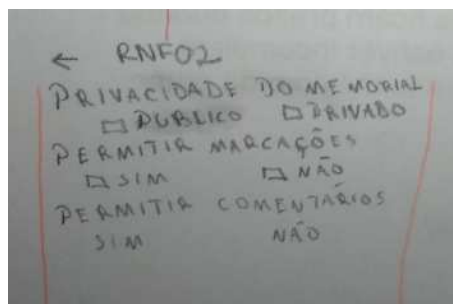 ← RNF02
PRIVACIDADE DO MEMORIAL
□ PUBLICO □ PRIVADO
PERMITIR MARCAÇÕES
□ SIM □ NÃO
PERMITIR COMENTÁRIOS
SIM NÃO